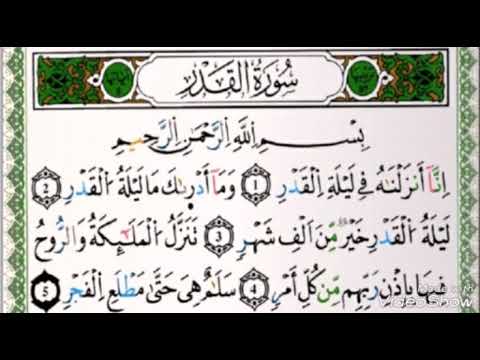 سُورَةُ الْقَدْرِ
بِسْمِ اللّٰهِ الرَّحْمٰنِ الرَّحِيمِ
اِنَّآ أَنزَلْنَٰهُ فِي لَيْلَةِ اِ۬لْقَدْرِ 1 وَمَآ أَدْر۪ىٰكَ مَا لَيْلَةُ اُ۬لْقَدْرِ 2
لَيْلَةُ اُ۬لْقَدْرِ خَيْرٌ مِّنَ اَلْفِ شَهْرٍ 3 تَنَزَّلُ اُ۬لْمَلَٰٓئِكَةُ وَالرُّوحُ
فِيهَا بِإِذْنِ رَبِّهِم مِّن كُلِّ أَمْرٍ 4 سَلَٰمٌ هِيَ حَتَّىٰ مَطْلَعِ اِ۬لْفَجْرِ 5
Made with
VideoShow